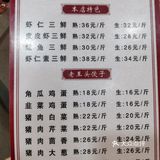 本店特色
虾仁三鲜 熟:36元/斤 生:32元/斤
皮虾三鲜 熟:36元/斤 生:32元/斤
鱼三鲜 熟:30元/斤 生:26元/斤
虾仁素三鲜 熟:38元/斤 生:34元/斤
老王头饺子
角瓜鸡蛋 熟:20元/斤 生:16元/斤
韭菜鸡蛋 熟:20元/斤 生:16元/斤
猪肉白菜 熟:22元/斤 生:18元/斤
猪肉芹菜 熟:22元/斤 生:18元/斤
猪肉茴香 熟:28元/斤 生:24元/斤
猪肉大葱 熟:28元/斤 生:24元/斤